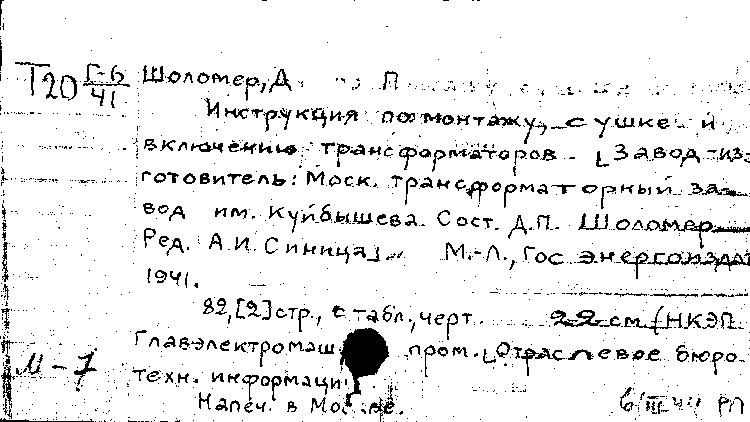 Т20 Г-6/41
Шоломер, Д. П.
Инструкция по монтажу, сушке и
включению трансформаторов. [Завод-из-
готовитель: Моск. трансформаторный за-
вод им. Куйбышева. Сост. Д.П. Шоломер
Ред. А.И. Синица]. М.-Л., Госэнергоиздат
1941.
82,[2]стр., табл., черт. 22 см (НКЭП
Главэлектромаш пром. Отраслевое бюро
техн. информаци
М-7
Напеч. в Москве.
6/III 44 РП